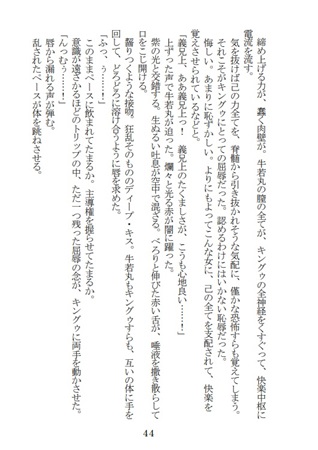 締め上げる力が、蠢く肉壁が、牛若丸の膣の全てが、キングゥの全神経をくすぐって、快楽中枢に
電流を流す。
気を抜けば己の力全てを、脊髄から引き抜かれそうな気配に、僅かな恐怖すらも覚えてしまう。
それこそがキングゥにとっての屈辱だった。認めるわけにはいかない恥辱だった。
悔しい。あまりに恥ずかしい。よりにもよってこんな女に、己の全てを支配されて、快楽を
覚えさせられているなどと。
「義兄上、ああ義兄上っ！　義兄上のたくましさが、こうも心地良い……！」
上ずった声で牛若丸が迫った。爛々と光る赤が闇に躍った。
紫の光と交錯する。生ぬるい吐息が空中で混ざる。べろりと伸びた赤い舌が、唾液を撒き散らして
口をこじ開ける。
齧りつくような接吻。狂乱そのもののディープ・キス。牛若丸もキングゥすらも、互いの体に手を
回して、どろどろに溶け合うように唇を求めた。
「ふっ、う……！」
このままペースに飲まれてたまるか。主導権を握らせてたまるか。
意識が遠ざかるほどのトリップの中、ただ一つ残った屈辱の念が、キングゥに両手を動かさせた。
「んっむぅ……！」
唇から漏れる声が弾む。
乱されたペースが体を跳ねさせる。
44